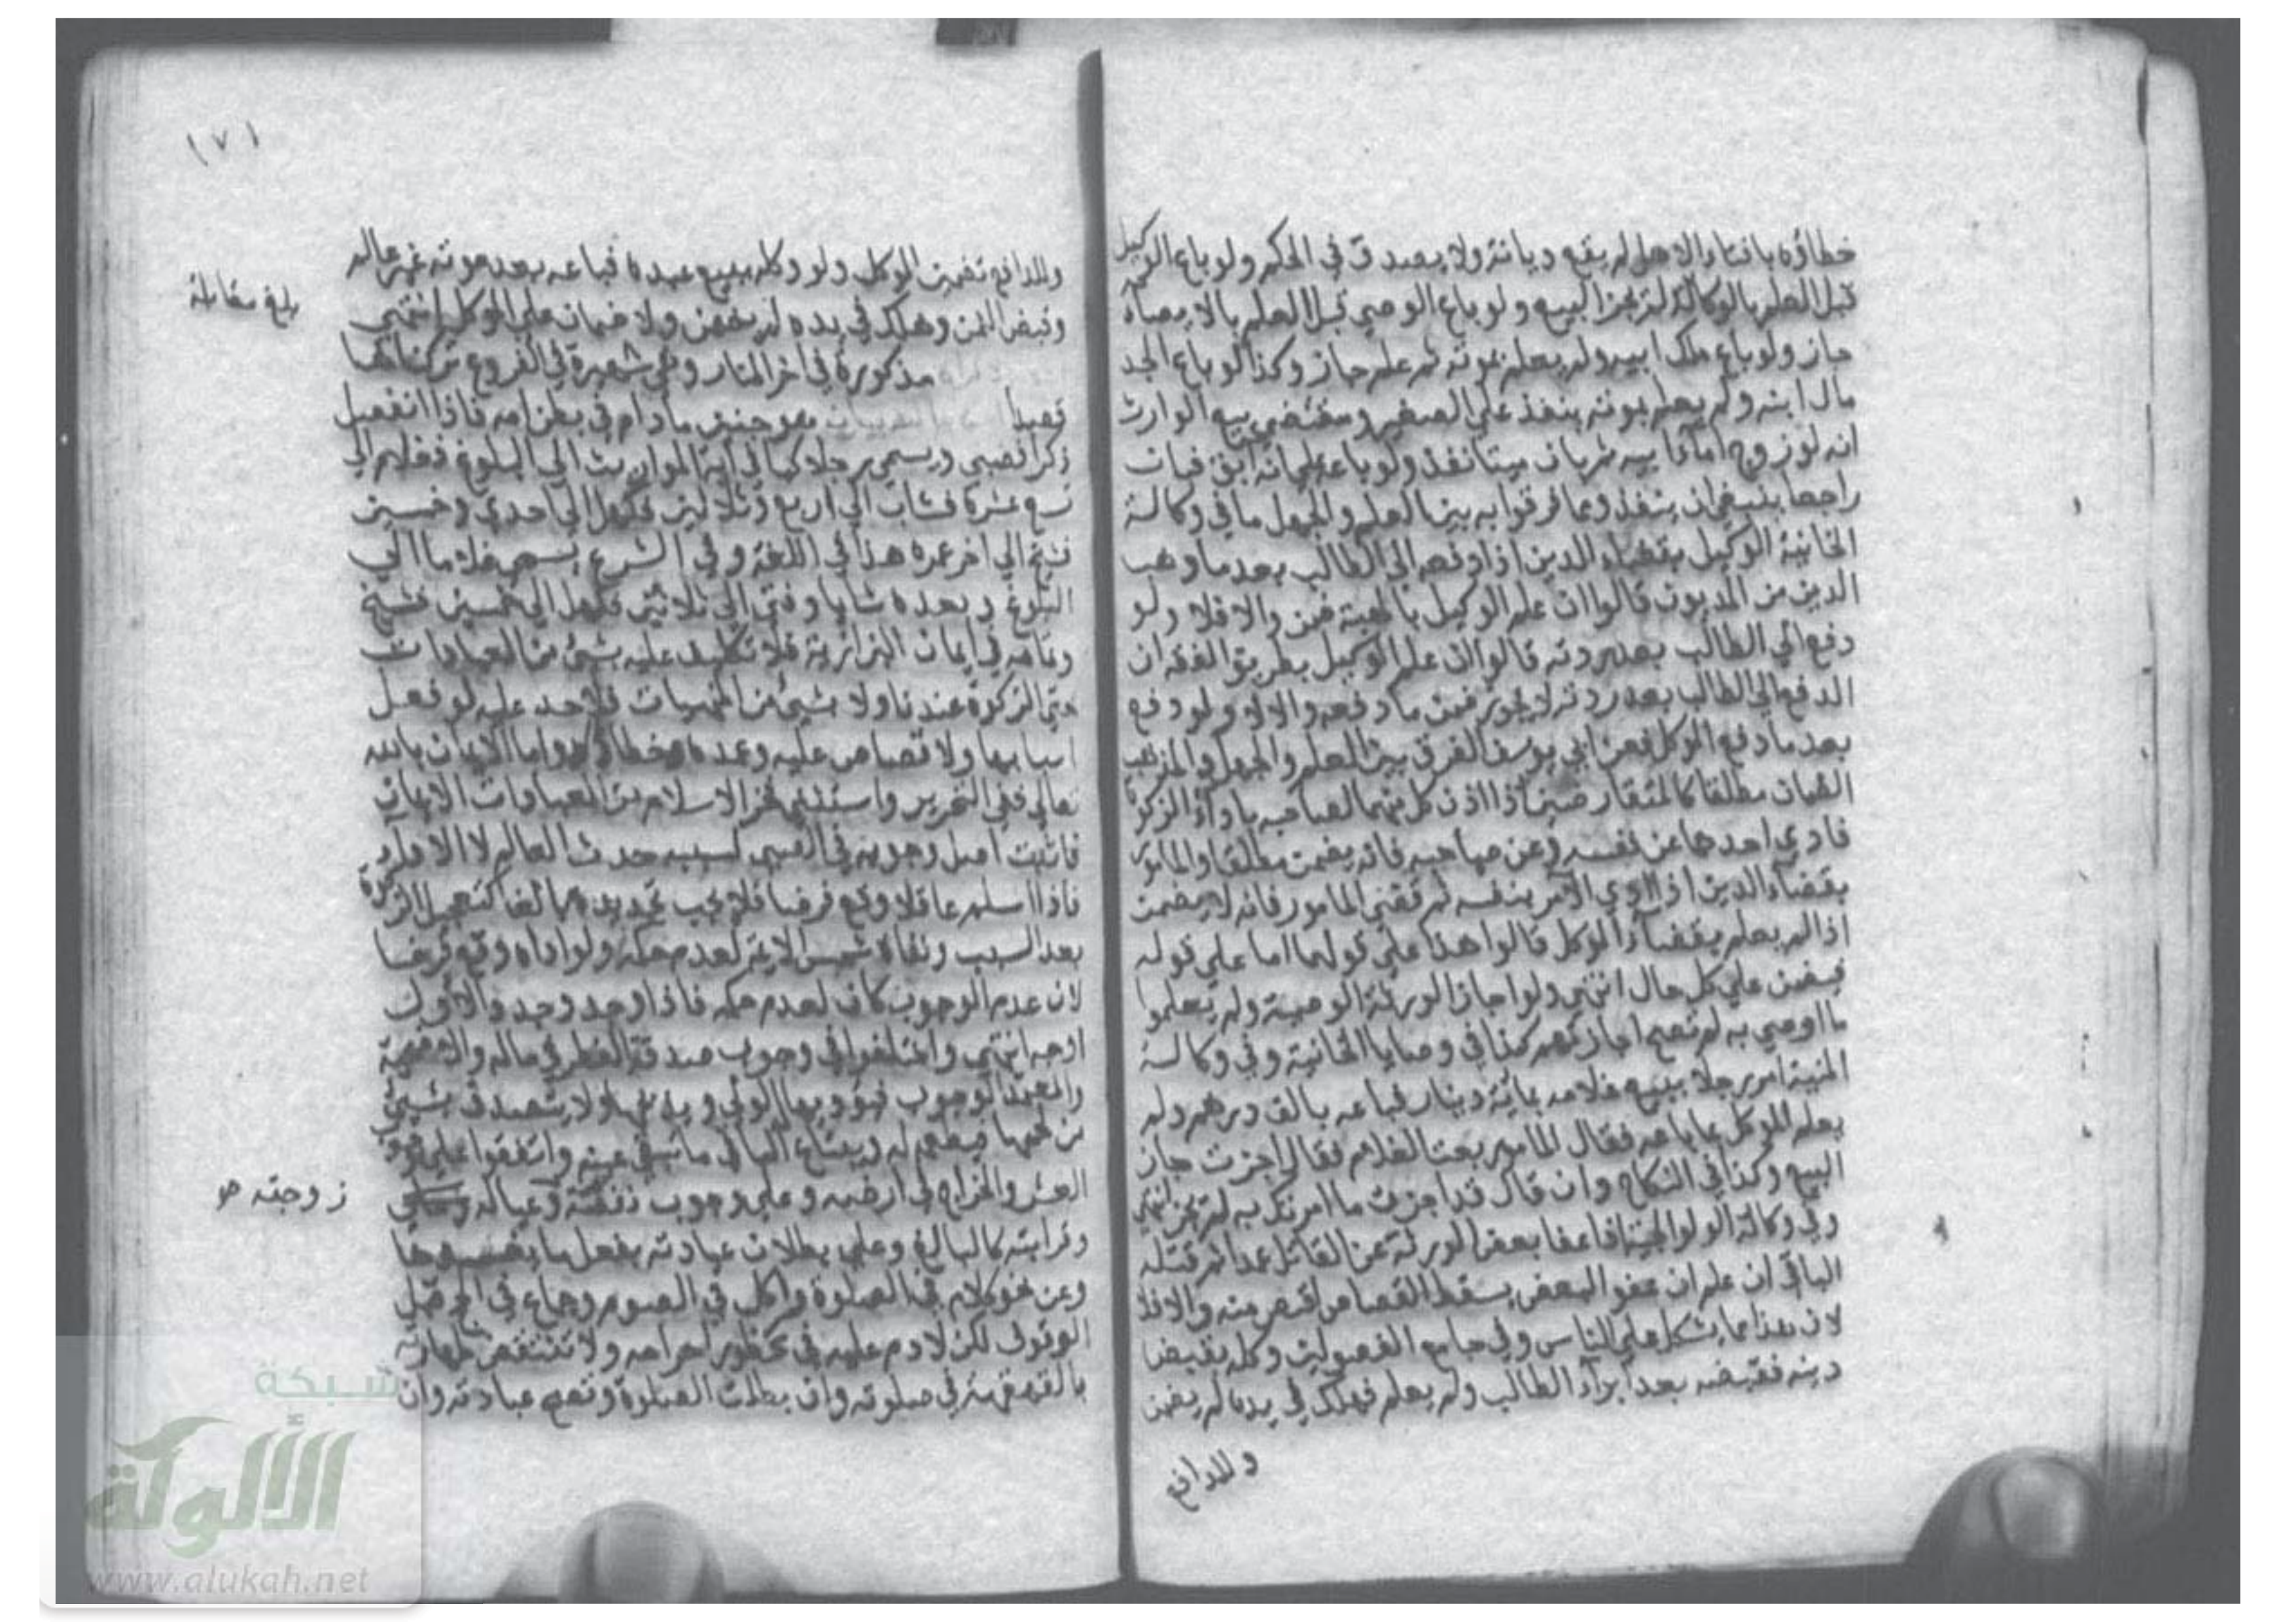 خطاؤه بافتاء الاهل لم يقع ديانة ولا يصدق في الحكم ولو باع الوكيل
قبل العلم بالوكالة لم يجز البيع ولو باع الوصي قبل العلم بالايصاء
جاز ولو باع ملك ابيه ولم يعلم بموته ثم علم جاز وكذا لو باع الجد
مال ابنه ولم يعلم بموته ينفذ علي الصغير ومقتضي بيع الوارث
انه لو زوج امة ابيه ثم بان ميتا نفذ ولو باعه علي انه ابق فبان
راجعا ينبغي ان ينفذ ومما فرقوا به بين العلم والجهل ما في وكالة
الخانية الوكيل بقضاء الدين اذا دفعه الي الطالب بعد ما وهب
الدين من المديون قالوا ان علم الوكيل بالهبة ضمن والا فلا ولو
دفع الي الطالب بعد ردته قالوا ان علم الوكيل بطريق الفقه ان
الدفع الي الطالب بعد ردته لا يجوز ضمن ما دفعه والا فلا ولو دفع
بعد ما دفع الموكل فعن ابي يوسف الفرق بين العلم والجهل والمذهب
الضمان مطلقا كالمتفاوضين اذا اذن كل منهما لصاحبه باداء الزكوة
فادي احدهما عن نفسه وعن صاحبه فانه يضمن مطلقا والمامور
بقضاء الدين اذا ادي الآمر بنفسه ثم قضي المامور فانه لا يضمن
اذا لم يعلم بقضاء الموكل قالوا هذا علي قولهما اما علي قوله
فيضمن علي كل حال انتهي ولو اجاز الورثة الوصية ولم يعلموا
ما اوصي به لم تصح اجازتهم كذا في وصايا الخانية وفي وكالة
المنية امر رجلا ببيع غلامه بمائة دينار فباعه بالف درهم ولم
يعلم الموكل بما باعه فقال المامور بعت الغلام فقال اجزت جاز
البيع وكذا في النكاح وان قال قد اجزت ما امرتك به لم يجز انتهي
وفي وكالة الولوالجية اذا عفا بعض الورثة عن القاتل عمدا ثم قتله
الباقي ان علم ان عفو البعض يسقط القصاص اقتص منه والا فلا
لان هذا مما يشكل علي الناس وفي جامع الفصولين وكله بقبض
دينه فقبضه بعد ابراء الطالب ولم يعلم فهلك في يده لم يضمن
وللدافع
١٧١
وللدافع تضمين الموكل ولو وكله ببيع عبده فباعه بعد موته غير عالم
وقبض الثمن وهلك في يده لم يضمن ولا ضمان علي الموكل انتهي
بلغ مقابلة
مذكورة في آخر المنار وهي شهيرة في الفروع تركناها
قصدا هو جنين ما دام في بطن امه فاذا انفصل
ذكرا فصبي ويسمي رجلا كما في اية المواريث الي البلوغ فغلام الي
تسع عشرة فشاب الي اربع وثلاثين فكهل الي احدي وخمسين
فشيخ الي اخر عمره هذا في اللغة وفي الشرع يسمي غلاما الي
البلوغ وبعده شابا وفتي الي ثلاثين فكهل الي خمسين فشيخ
وتمامه في ايمان البزازية فلا تكليف عليه بشيء من العبادات
حتي الزكوة عندنا ولا بشيء من المنهيات فلا حد عليه لو فعل
اسبابها ولا قصاص عليه وعمده خطا واما الايمان بالله
تعالي ففي التحرير واستثني فخر الاسلام من العبادات الايمان
فاثبت اصل وجوبه في الصبي لسببه حدث العالم لا الاداء
فاذا اسلم عاقلا وقع فرضا فلا يجب تجديده بالغا كتعجيل الزكوة
بعد السبب ونفاه شمس الايمة لعدم حكمه ولو اداه وقع فرضا
لان عدم الوجوب كان لعدم حكمه فاذا وجد وجد والاول
اوجه انتهي واختلفوا في وجوب صدقة الفطر في ماله والاضحية
والمعتمد الوجوب فيؤديها الولي ويذبحها ولا يتصدق بشيء
من لحمها فيطعمه له ويبتاع الباقي ما تبقي عينه واتفقوا علي وجوب
العشر والخراج في ارضه وعلي وجوب نفقة وعياله
زوجته صح
وقرابته كالبالغ وعلي بطلان عبادته بفعل ما يفسدها
وعن نحو كلام في الصلوة واكل في الصوم وجماع في الحج قبل
الوقوف لكن لا دم عليه في محظور احرامه ولا تنتقض طهارته
بالقهقهة في صلوته وان بطلت الصلوة وتصح عبادته وان
شبكة
الألوكة
www.alukah.net